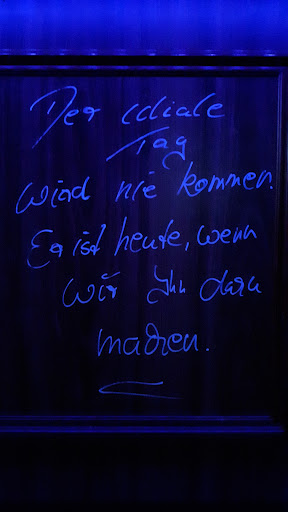 Der ideale
Tag
wird nie kommen.
Er ist heute, wenn
wir Ihn dazu
machen.